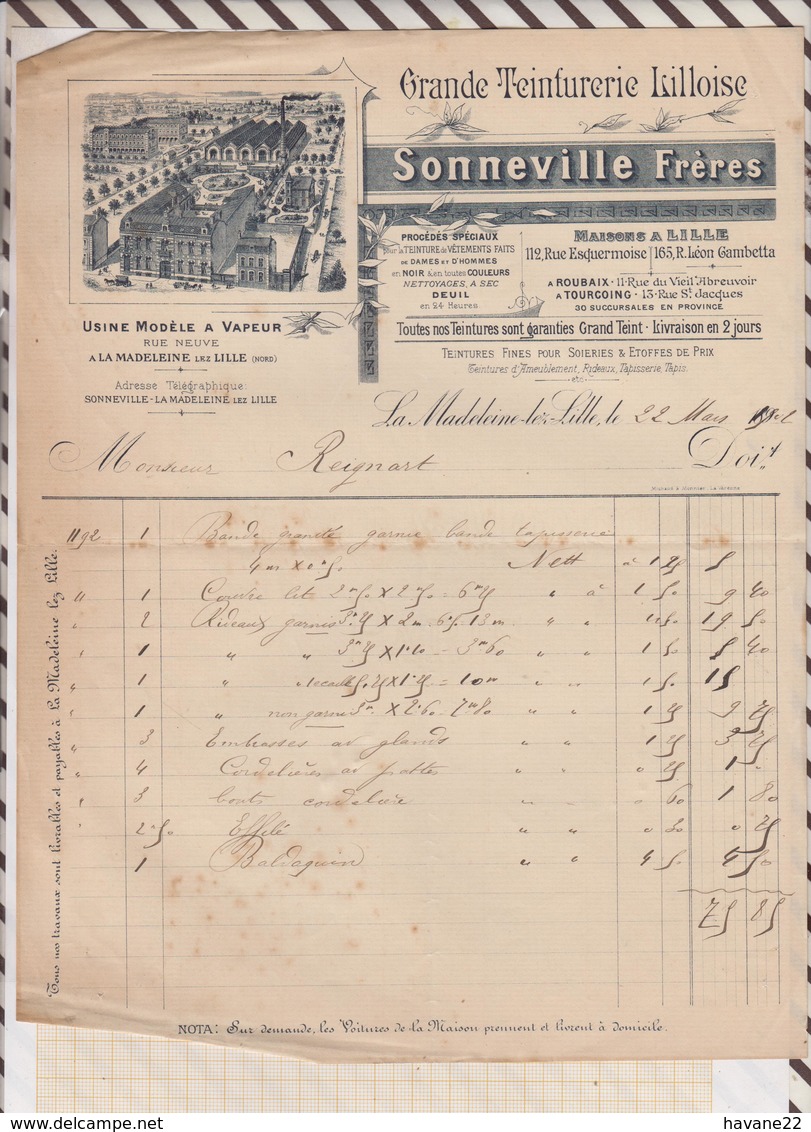 Grande Teinturerie Lilloise
Sonneville Frères
PROCÉDÉS SPÉCIAUX
pour la TEINTURE de VÊTEMENTS FAITS
DE DAMES ET D'HOMMES
en NOIR & en toutes COULEURS
NETTOYAGES, A SEC
DEUIL
en 24 Heures
MAISONS A LILLE
112, Rue Esquermoise | 165, R. Léon Gambetta
A ROUBAIX · 11 Rue du Vieil Abreuvoir
A TOURCOING · 13 Rue St Jacques
30 SUCCURSALES EN PROVINCE
Toutes nos Teintures sont garanties Grand Teint - Livraison en 2 jours
TEINTURES FINES POUR SOIERIES & ETOFFES DE PRIX
Teintures d'Ameublement, Rideaux, Tapisserie, Tapis.
etc.
USINE MODÈLE A VAPEUR
RUE NEUVE
A LA MADELEINE LEZ LILLE (NORD)
Adresse Télégraphique:
SONNEVILLE - LA MADELEINE LEZ LILLE
La Madeleine-lez-Lille, le 22 Mars
Monsieur Reignart Doit
1192 1 Bande granité garnie bande tapisserie
4m x 0m50 Nett à 1 25 5
" 1 Couvre lit 2m50 x 2m50 = 6m25 " à 1 50 9 40
" 2 Rideaux garnis 3m25 x 2m = 6.50 13m " " 1 50 19 50
1 " " 3m25 x 1.10 = 3m60 " " 1 50 5 40
" 1 " " x 1m25 = 10m " " 1 50 15
" 1 " non garnis 3m x 2.60 = 7m80 " " 1 25 9 75
" 3 Embrasses av glands " " 1 25 3 75
" 4 Cordelières av pattes " " " 25 1 "
" 3 bouts cordelière " " " 60 1 80
" 2m50 Effilé " " " 30 " 75
1 Baldaquin " " 4 50 4 50
75 85
Tous nos travaux sont livrables et payables à la Madeleine lez Lille.
NOTA: Sur demande, les Voitures de la Maison prennent et livrent à domicile.
havane22